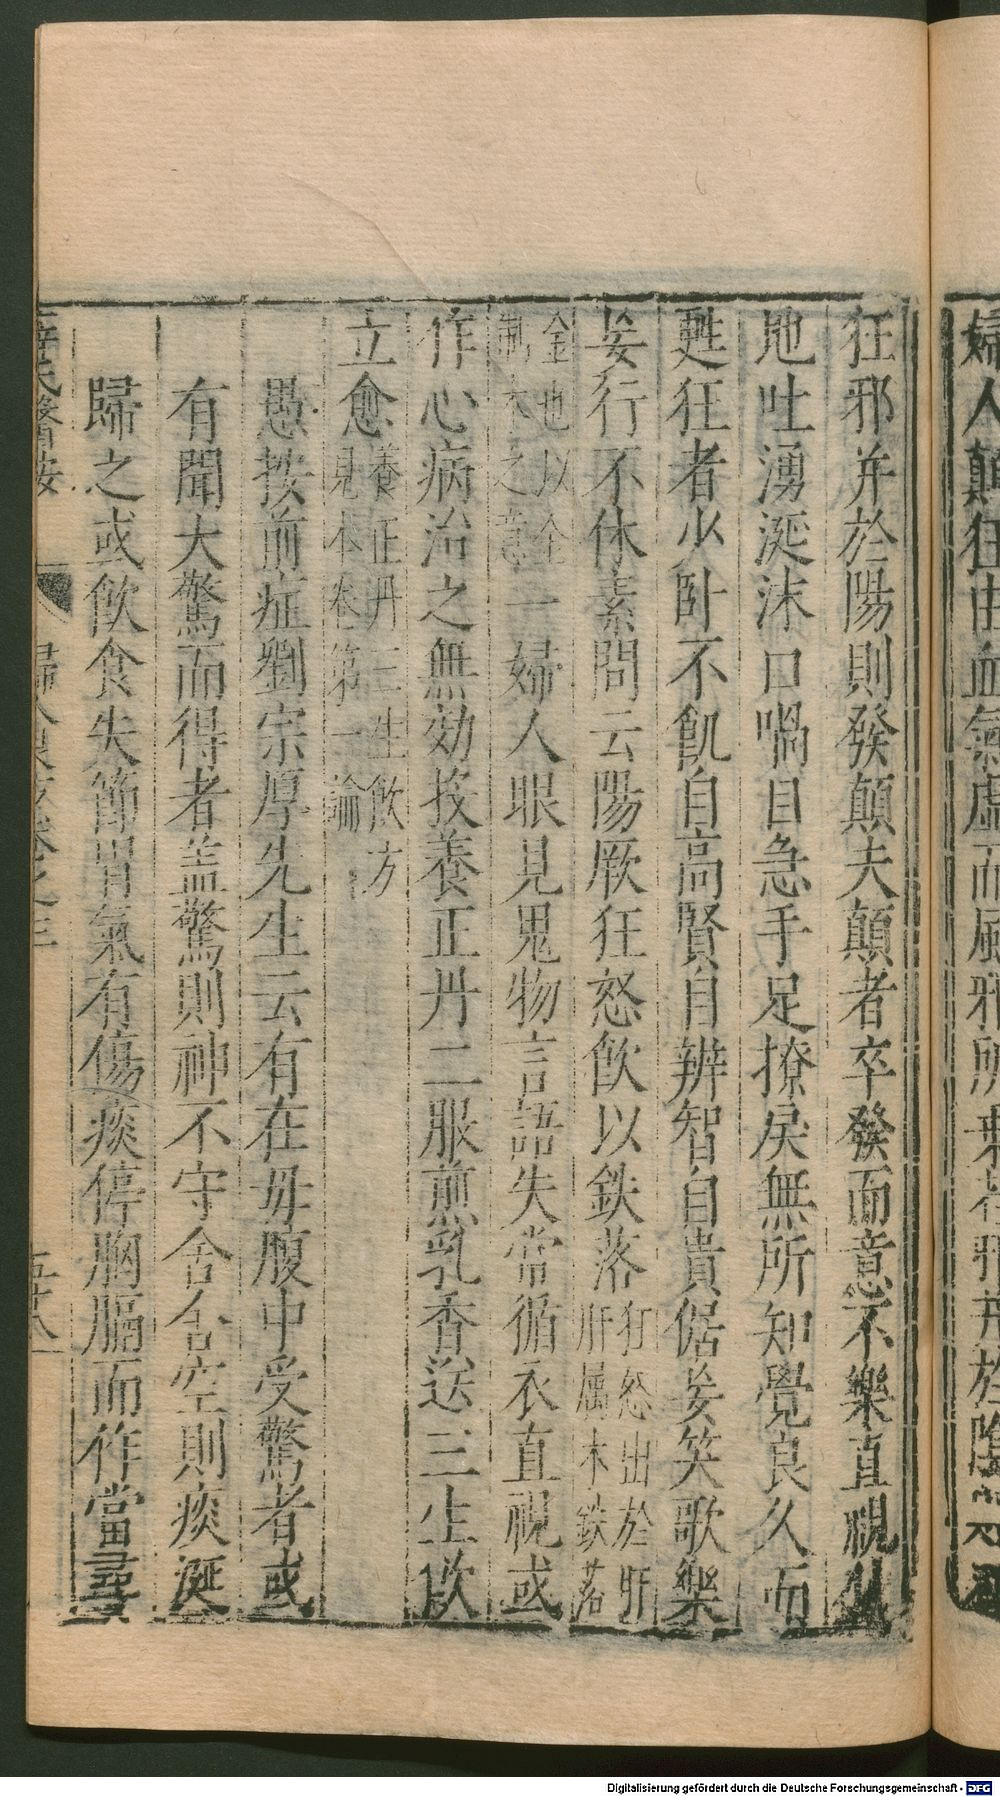 婦人顛狂由血氣虛而風邪所乗若邪并於陰
狂邪并於陽則發顛夫顛者卒發而意不樂直視仆
地吐湧涎沫口喎目急手足撩戾無所知覺良久而
甦狂者少卧不飢自高賢自辨智自貴倨妄笑歌樂
妄行不休素問云陽厥狂怒飲以鉄落
狂怒出於肝
肝属木鉄落
金也以金
制木之意
一婦人眼見鬼物言語失常循衣直視或
作心病治之無効按養正丹二服煎乳香送三生飲
立愈
養正丹三生飲方
見本卷第一論
愚按前症劉宗厚先生云有在母腹中受驚者或
有聞大驚而得者盖驚則神不守舍舍空則痰涎
歸之或飲食失節胃氣有傷痰停胸膈而作當尋
薛氏醫按
婦人良方卷之三
五十八
Digitalisierung gefördert durch die Deutsche Forschungsgemeinschaft - DFG